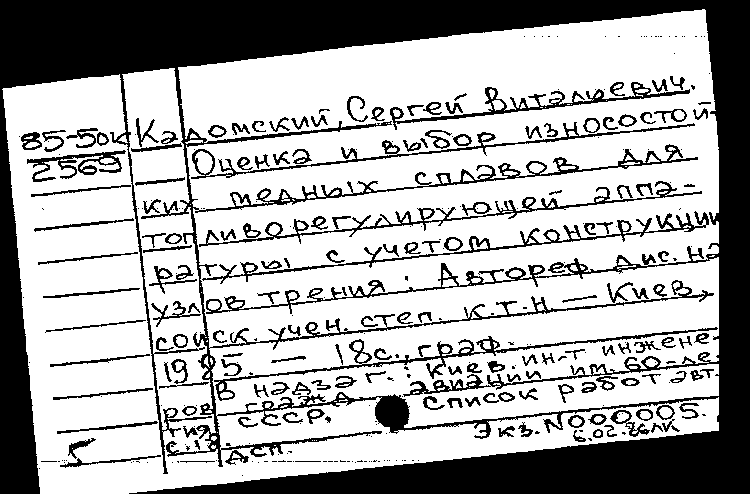 85-50к Кадомский, Сергей Витальевич.
2569 Оценка и выбор износостой-
ких медных сплавов для
топливорегулирующей аппа-
ратуры с учетом конструкции
узлов трения: Автореф. дис. на
соиск. учен. степ. к.т.н. — Киев,
1985. — 18с., граф.
В надзаг.: Киев. ин-т инжене-
ров гражд. авиации им. 60-ле-
тия СССР. Список работ авт.
с.18.
ДСП. Экз. N000005.
5 6.02.86ЛК